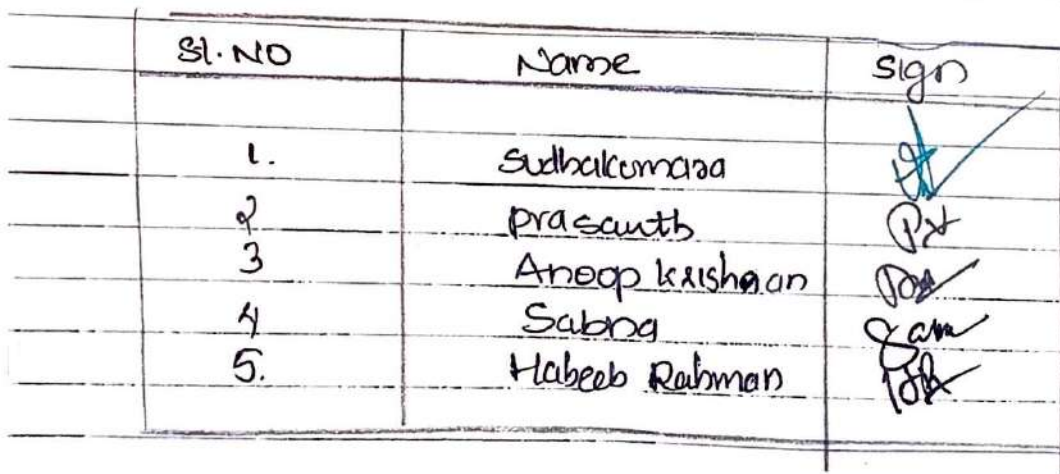 Sl. NO Name Sign
1. Sudhakumara
2 prasanth
3 Anoop krishnan
4 Sabna
5. Habeeb Rahman